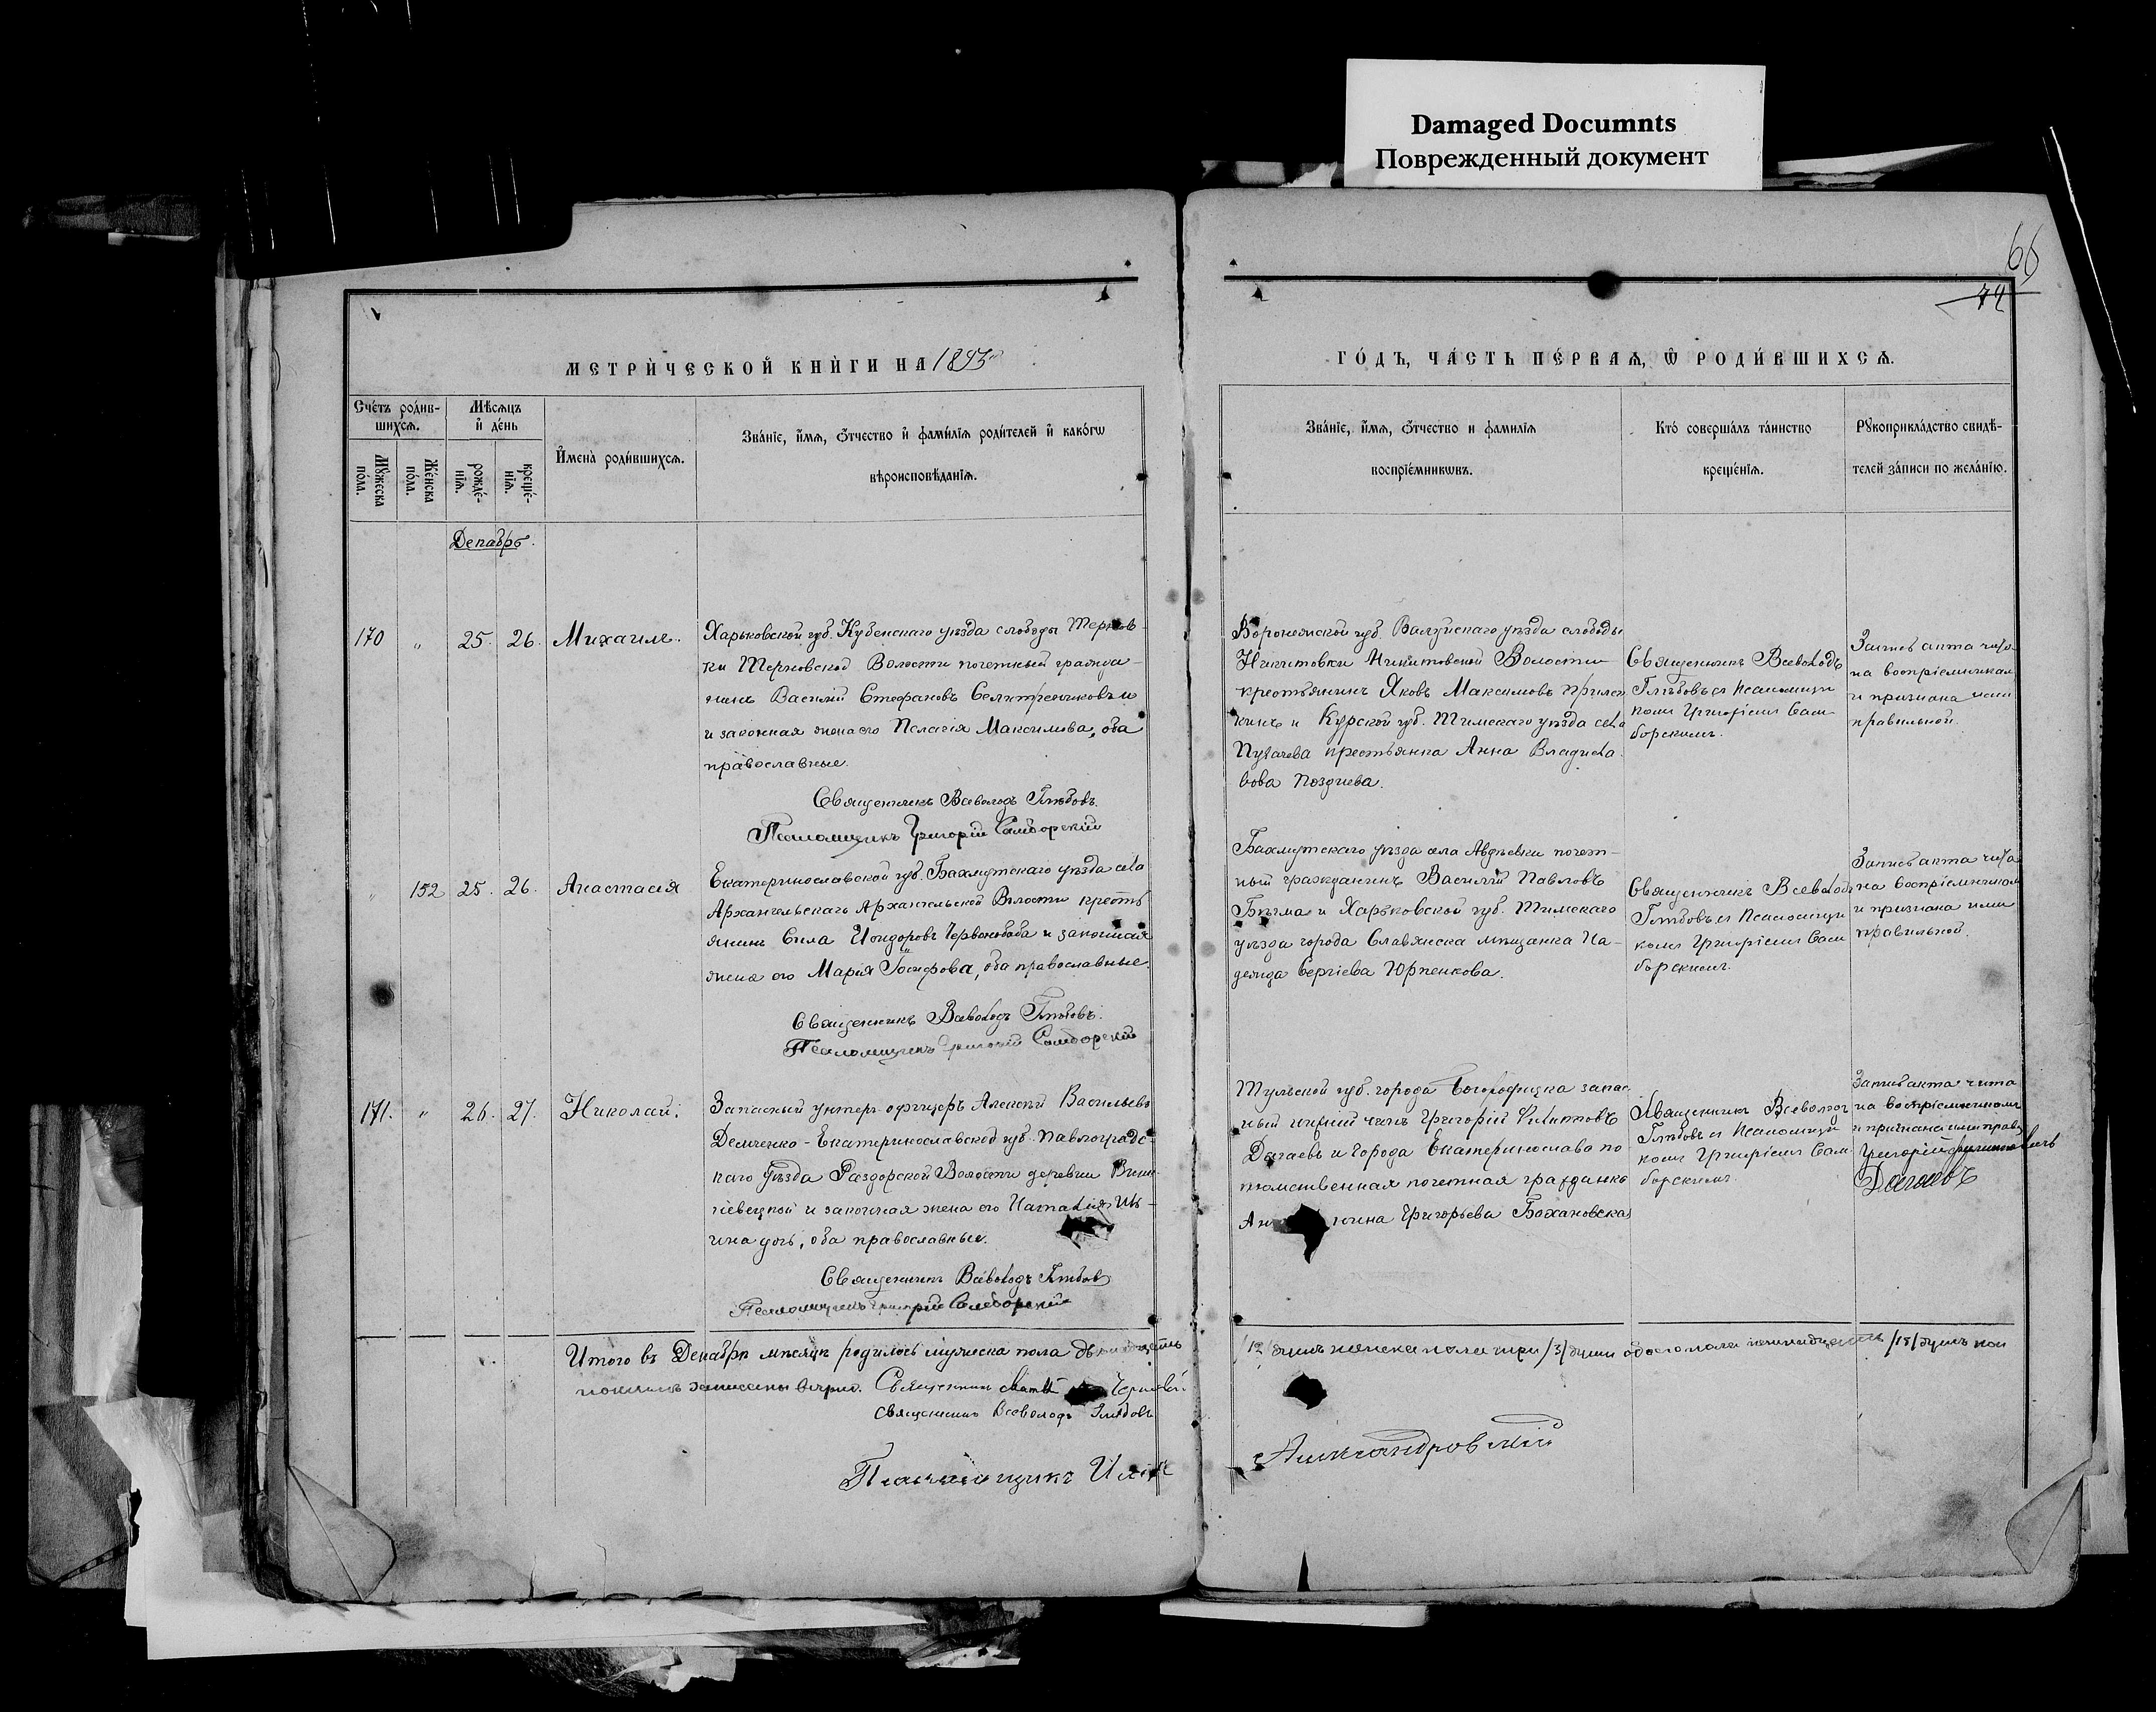 Damaged Documnts
Поврежденный документ
66
74
МЕТРИ́ЧЕСКОЙ КНИ́ГИ НА 1893
ГО́ДЪ, ЧА́СТЬ ПЕ́РВАЯ, Ѽ РОДИ́ВШИХСѦ.
Сче́тъ роди́в-
шихсѧ.
Мѣ́сѧцъ
и҆ де́нь
Мꙋ́жеска по́ла.
Же́нска по́ла.
рожде́-нїѧ.
креще́-нїѧ.
И҆мена̀ роди́вшихсѧ.
Зва́нїе, и҆́мѧ, ѻ҆́тчество и҆ фами́лїѧ роди́телей и҆ како́гѡ
вѣроисповѣ́данїѧ.
Зва́нїе, и҆́мѧ, ѻ҆́тчество и фами́лїѧ
воспрїе́мникѡвъ.
Кто́ соверша́лъ та́инство
креще́нїѧ.
Рꙋкоприкла́дство свидѣ́-
телей за́писи по жела́нїю.
Декабрь.
170 " 25. 26. Михаилъ.
Харьковской губ. Купенскаго уѣзда слободы Тернов-
ки Терновской Волости почетный гражда-
нинъ Василій Стефановъ Селитренниковъ и
и законная жена его Пелагія Максимова, оба
православные.
Священникъ Всеволодъ Глѣбовъ.
Псаломщикъ Григорій Самборскій
Воронежской губ. Валуйскаго уѣзда слободы
Никитовки Никитовской Волости
крестьянинъ Яковъ Максимовъ
кинъ и Курской губ. Тимскаго уѣзда села
Пузачева крестьянка Анна Владисла
вова Позднева.
Священникъ Всеволодъ
Глѣбовъ съ Псаломщи
комъ Григоріемъ Сам
борскимъ.
Запись акта чита
на воспріемникам
и признана ими
правильной.
" 152 25. 26. Анастасія
Екатеринославской губ. Бахмутскаго уѣзда села
Архангельскаго Архангельской Волости кресть
янинъ Сила Исидоровъ Червонобаба и законная
жена его Марія Іосифова, оба православные.
Священникъ Всеволодъ Глѣбовъ.
Псаломщикъ Григорій Самборскій
Бахмутскаго уѣзда села Авдѣевки почет-
ный гражданинъ Василій Павловъ
и Харьковской губ. Тимскаго
уѣзда города Славянска мѣщанка На-
дежда Сергіева Юрченкова.
Священникъ Всеволодъ
Глѣбовъ съ Псаломщи
комъ Григоріемъ Сам
борскимъ.
Запись акта чита
на воспріемникам
и признана ими
правильной.
171. " 26. 27. Николай.
Запасный унтеръ-офицеръ Алексѣй Васильевъ
Демченко - Екатеринославской губ. Павлоградс-
каго Уѣзда Раздорской Волости деревни
и законная жена его Наталія
ина дочь, оба православные.
Священникъ Всеволодъ Глѣбовъ
Псаломщикъ Григорій Самборскій
Тульской губ. города Богородицка запас
ный нижній чинъ Григорій Филиповъ
Дагаевъ и города Екатеринослава по
томственная почетная гражданка
Григорьева Божановская
Священникъ Всеволод
Глѣбовъ съ Псаломщи
комъ Григоріемъ Сам
борскимъ.
Запись акта чита
на воспріемниками
и признана ими прав.
Григорій Филиповичъ
Дагаевъ
Итого въ Декабрѣ мѣсяцѣ родилось мужеска пола двѣнадцать
/12/ душъ женска пола три /3/ души обоего пола пятнадцать /15/ душъ кои
записаны вѣрно. Священникъ
Священникъ Всеволодъ Глѣбовъ
Псаломщикъ
Александровскій